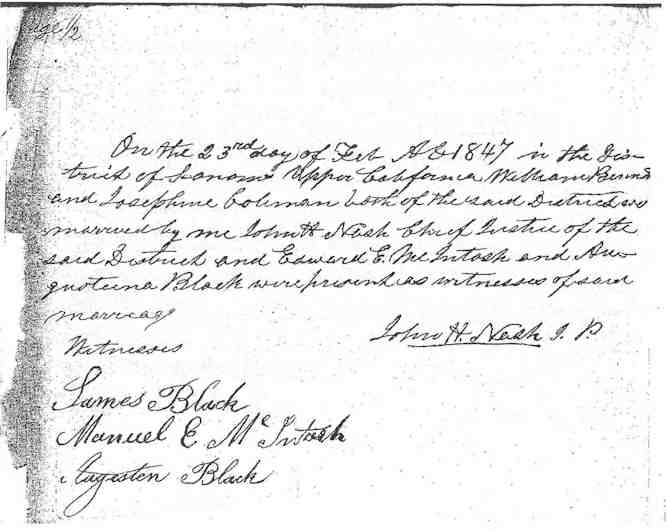 Page 1/2
On the 23rd day of Feb AD 1847 in the Dis-
trict of Sonoma Upper California William
and Josephine Coleman both of the said District
married by me John H Nash Chief Justice of the
said District and Edward E. McIntosh and Au-
gusteena Black were present as witnesses of said
marriage
John H. Nash J. P.
Witnesses
James Black
Manuel E McIntosh
Augusten Black